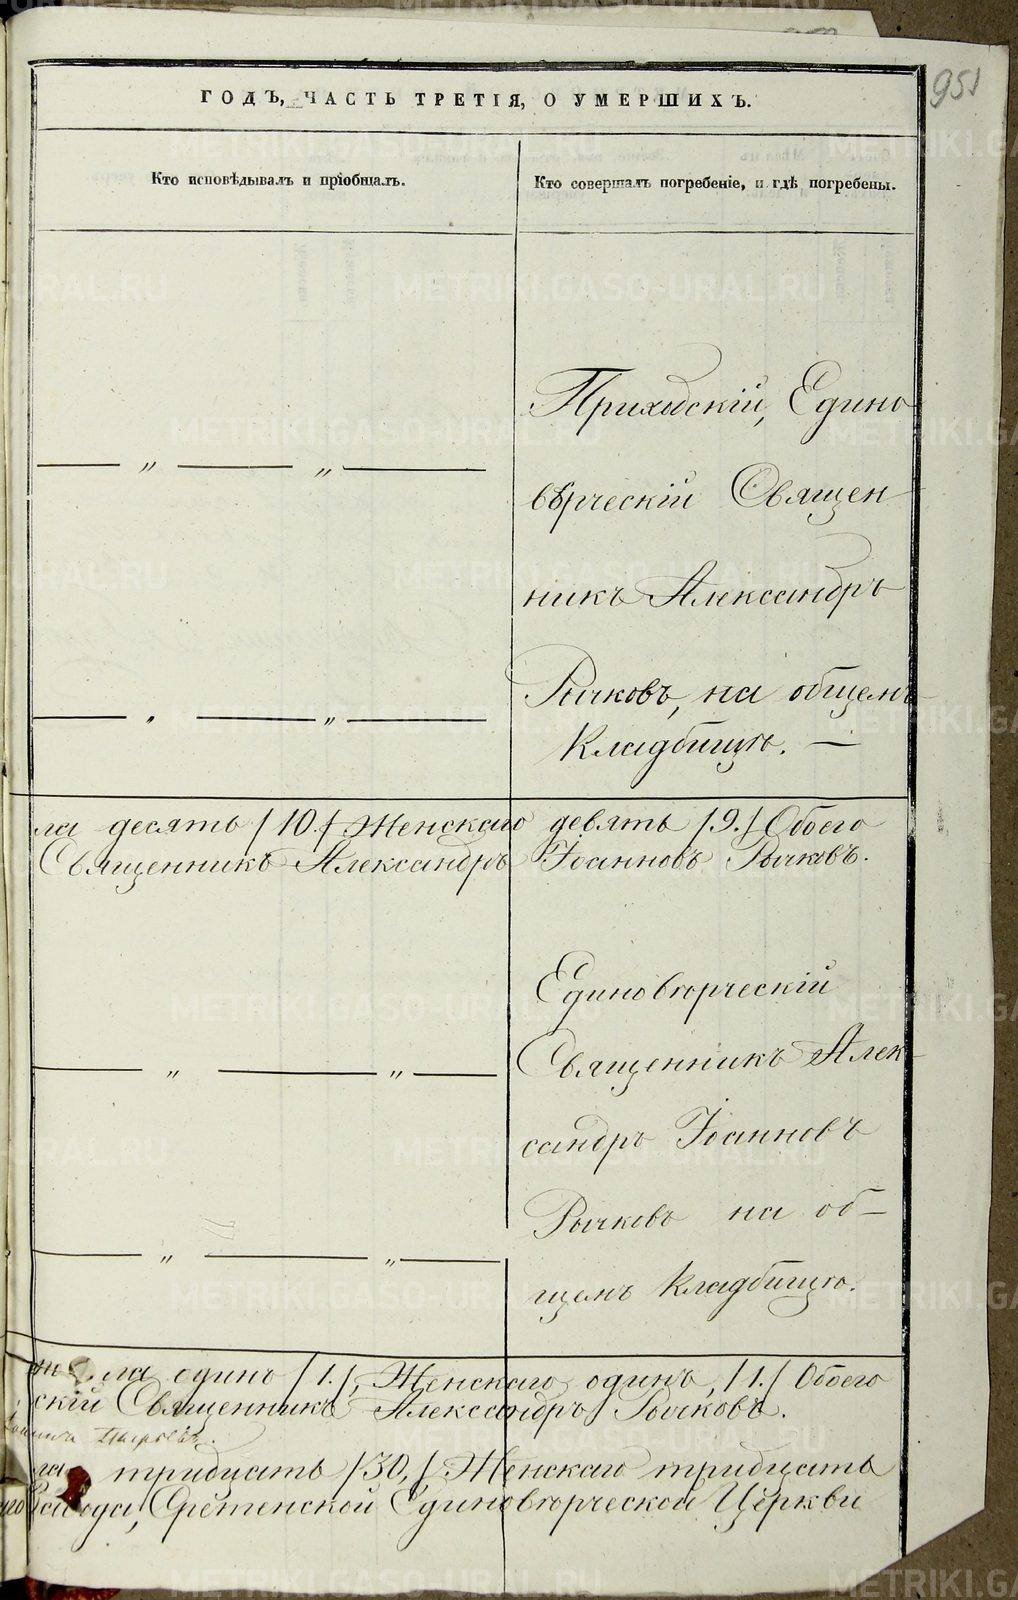 951
ГОДЪ, ЧАСТЬ ТРЕТІЯ, О УМЕРШИХЪ.
Кто исповѣдывалъ и прiобщалъ.
Кто совершалъ погребеніе, и гдѣ погребены.
Приходскій, Едино
вѣрческій Священ
никъ Александръ
Рычковъ, на общемъ
кладбищѣ. —
— „ — „ —
— „ — „ —
ла десять /10./ Женскаго девять /9./ Обоего
Священникъ Александръ Іоанновъ Рычковъ.
Единовѣрческій
Священникъ Алек
сандръ Іоанновъ
Рычковъ на об—
щемъ кладбищѣ.
— „ — „ —
— „ — „ —
ла одинъ /1./, Женскаго одинъ, /1./ Обоего
скій Священникъ Александръ Рычковъ.
ла тридцать /30,/ Женскаго тридцать
Завода, Срѣтенской Единовѣрческой Церкви
METRIKI.GASO-URAL.RU